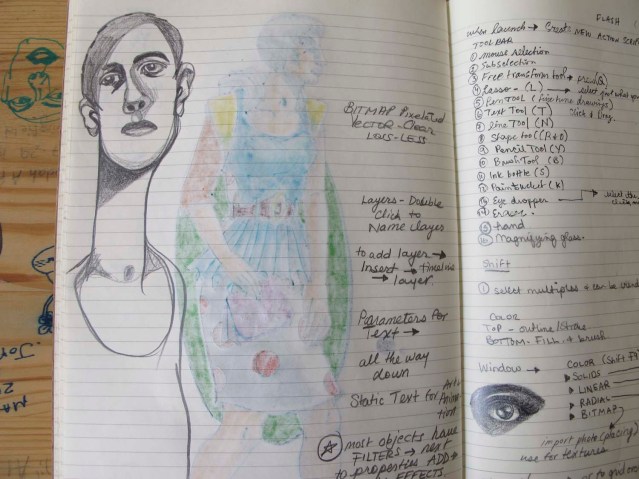 BITMAP Pixelated
VECTOR - Clear
LOSS-LESS
Layers - Double
Click to
Name layer
to add layer →
Insert → timeline
→ layer.
Parameters for
Text →
all the way
down
Static Text for Art &
Animation
most objects have
FILTERS → next
to properties ADD →
EFFECTS.
FLASH
when launch → Create NEW ACTION SCRIPT
TOOLBAR
① mouse selection
② Subselection
③ Free transform tool →
④ Lasso - (L) → select just what you
⑤ Pen TOOL (fine tune drawings)
⑥ Text Tool (T) Click & Drag
⑦ Line TOOL (N)
⑧ Shape tool (R & O)
⑨ Pencil Tool (Y)
⑩ Brush Tool (B)
⑪ Ink bottle (S)
⑫ Paintbucket (K)
⑬ Eye dropper → select the
⑭ Eraser.
⑮ hand
⑯ Magnifying glass.
Shift
① select multiples + can be
COLOR
TOP - outline/stroke
BOTTOM - FILL + brush
Windows → COLOR (Shift F
SOLIDS
LINEAR
RADIAL
BITMAP
import photo (placing)
use for textures